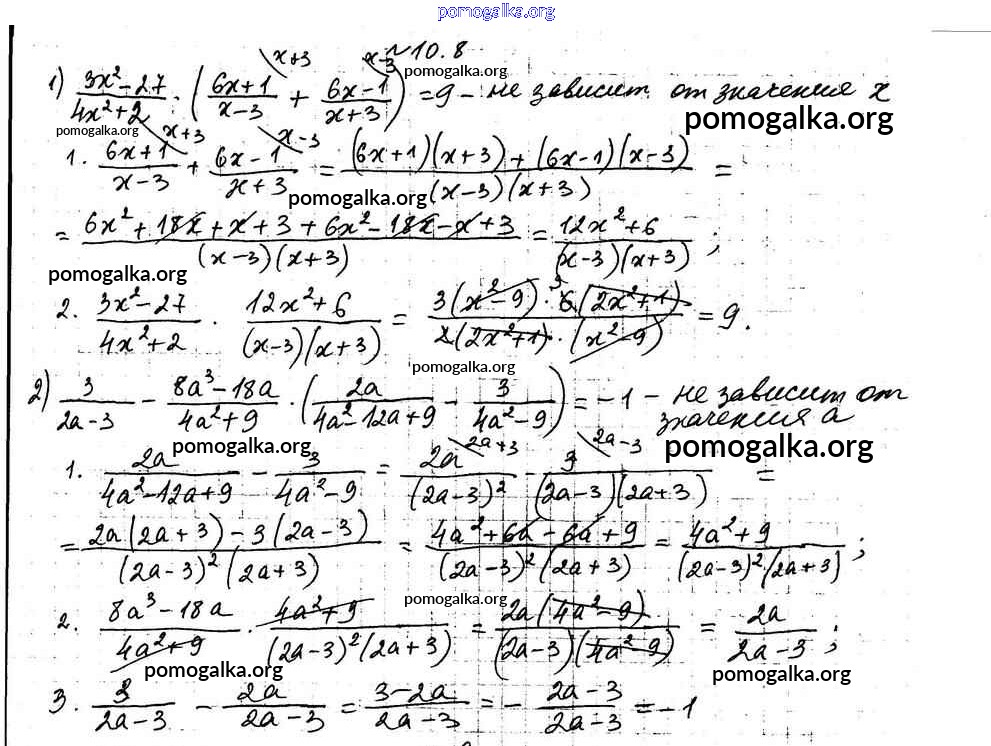 pomogalka.org
№10.8
1) (3x²-27)/(4x²+2) · ((6x+1)/(x-3) + (6x-1)/(x+3)) = 9 - не зависит от значения x
x+3 x-3
pomogalka.org
pomogalka.org
pomogalka.org
1. (6x+1)/(x-3) + (6x-1)/(x+3) = ((6x+1)(x+3)+(6x-1)(x-3))/((x-3)(x+3)) =
x+3 x-3
pomogalka.org
= (6x²+18x+x+3+6x²-18x-x+3)/((x-3)(x+3)) = (12x²+6)/((x-3)(x+3));
pomogalka.org
2. (3x²-27)/(4x²+2) · (12x²+6)/((x-3)(x+3)) = (3(x²-9)·6(2x²+1))/(2(2x²+1)·(x²-9)) = 9.
3
pomogalka.org
2) 3/(2a-3) - (8a³-18a)/(4a²+9) · (2a/(4a²-12a+9) - 3/(4a²-9)) = -1 - не зависит от
значения a
pomogalka.org
pomogalka.org
1. 2a/(4a²-12a+9) - 3/(4a²-9) = 2a/(2a-3)² - 3/((2a-3)(2a+3)) =
2a+3 2a-3
= (2a(2a+3)-3(2a-3))/((2a-3)²(2a+3)) = (4a²+6a-6a+9)/((2a-3)²(2a+3)) = (4a²+9)/((2a-3)²(2a+3));
pomogalka.org
2. (8a³-18a)/(4a²+9) · (4a²+9)/((2a-3)²(2a+3)) = (2a(4a²-9))/((2a-3)(4a²-9)) = 2a/(2a-3);
pomogalka.org
pomogalka.org
3. 3/(2a-3) - 2a/(2a-3) = (3-2a)/(2a-3) = - (2a-3)/(2a-3) = -1